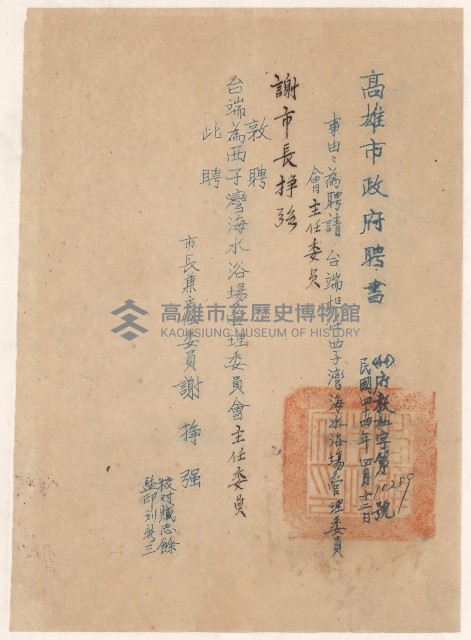 高雄市政府聘書
(44)府教社字第10289號
民國四十四年四月十二日
事由：為聘請 台端担任西子灣海水浴場管理委員
會主任委員
謝市長掙強
敦聘
台端為西子灣海水浴場管理委員會主任委員
此聘
市長兼主任委員 謝掙强
校對臧志餘
監印劉新三
高雄市立歷史博物館
KAOHSIUNG MUSEUM OF HISTORY